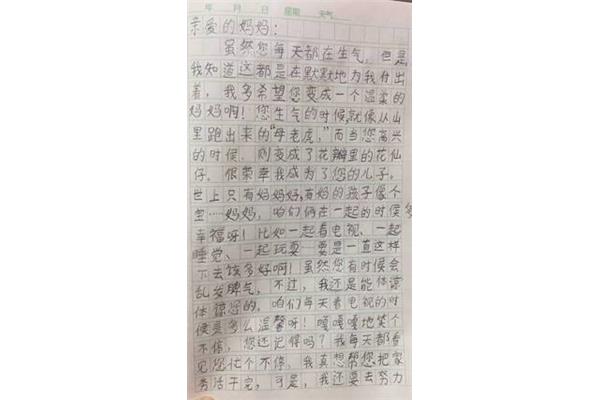 年 月 日 星期 天气
亲爱的妈妈:
虽然您每天都在生气,但是
我知道这都是在默默地为我付出
着,我多希望您变成一个温柔的
妈妈啊!您生气的时候,就像从山
里跑出来的“母老虎,”而当您高兴
的时候,则变成了花瓣里的花仙
仔。很荣幸我成为了您的儿子。
世上只有妈妈好,有妈的孩子像个
宝……妈妈,咱们俩在一起的时候多
幸福呀!比如一起看电视、一起
睡觉、一起玩耍 要是一直这样
下去该多好啊!虽然您有时候会
乱发脾气,不过,我还是能体谅
体谅您的。咱们每天看电视的时
候是多么温馨呀!嘎嘎嘎地笑个
不停,您还记得吗?我每天都看
见您忙个不停,我真想帮您把家
务活干完,可是,我还要去努力